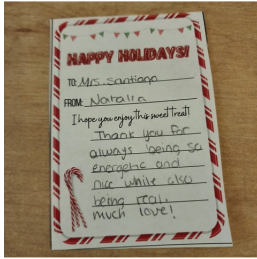 HAPPY HOLIDAYS!
TO: Mrs. Santiago
FROM: Natalia
I hope you enjoy this sweet treat!
Thank you for
always being so
energetic and
nice while also
being real.
much love!